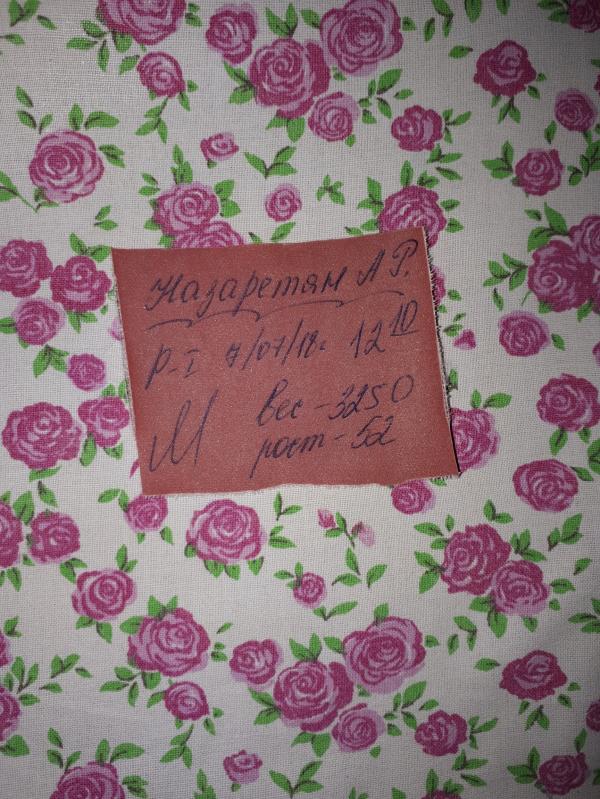 Назаретян А Р.
Р-I 7/07/18г. 12 10
М вес - 3250
рост - 52